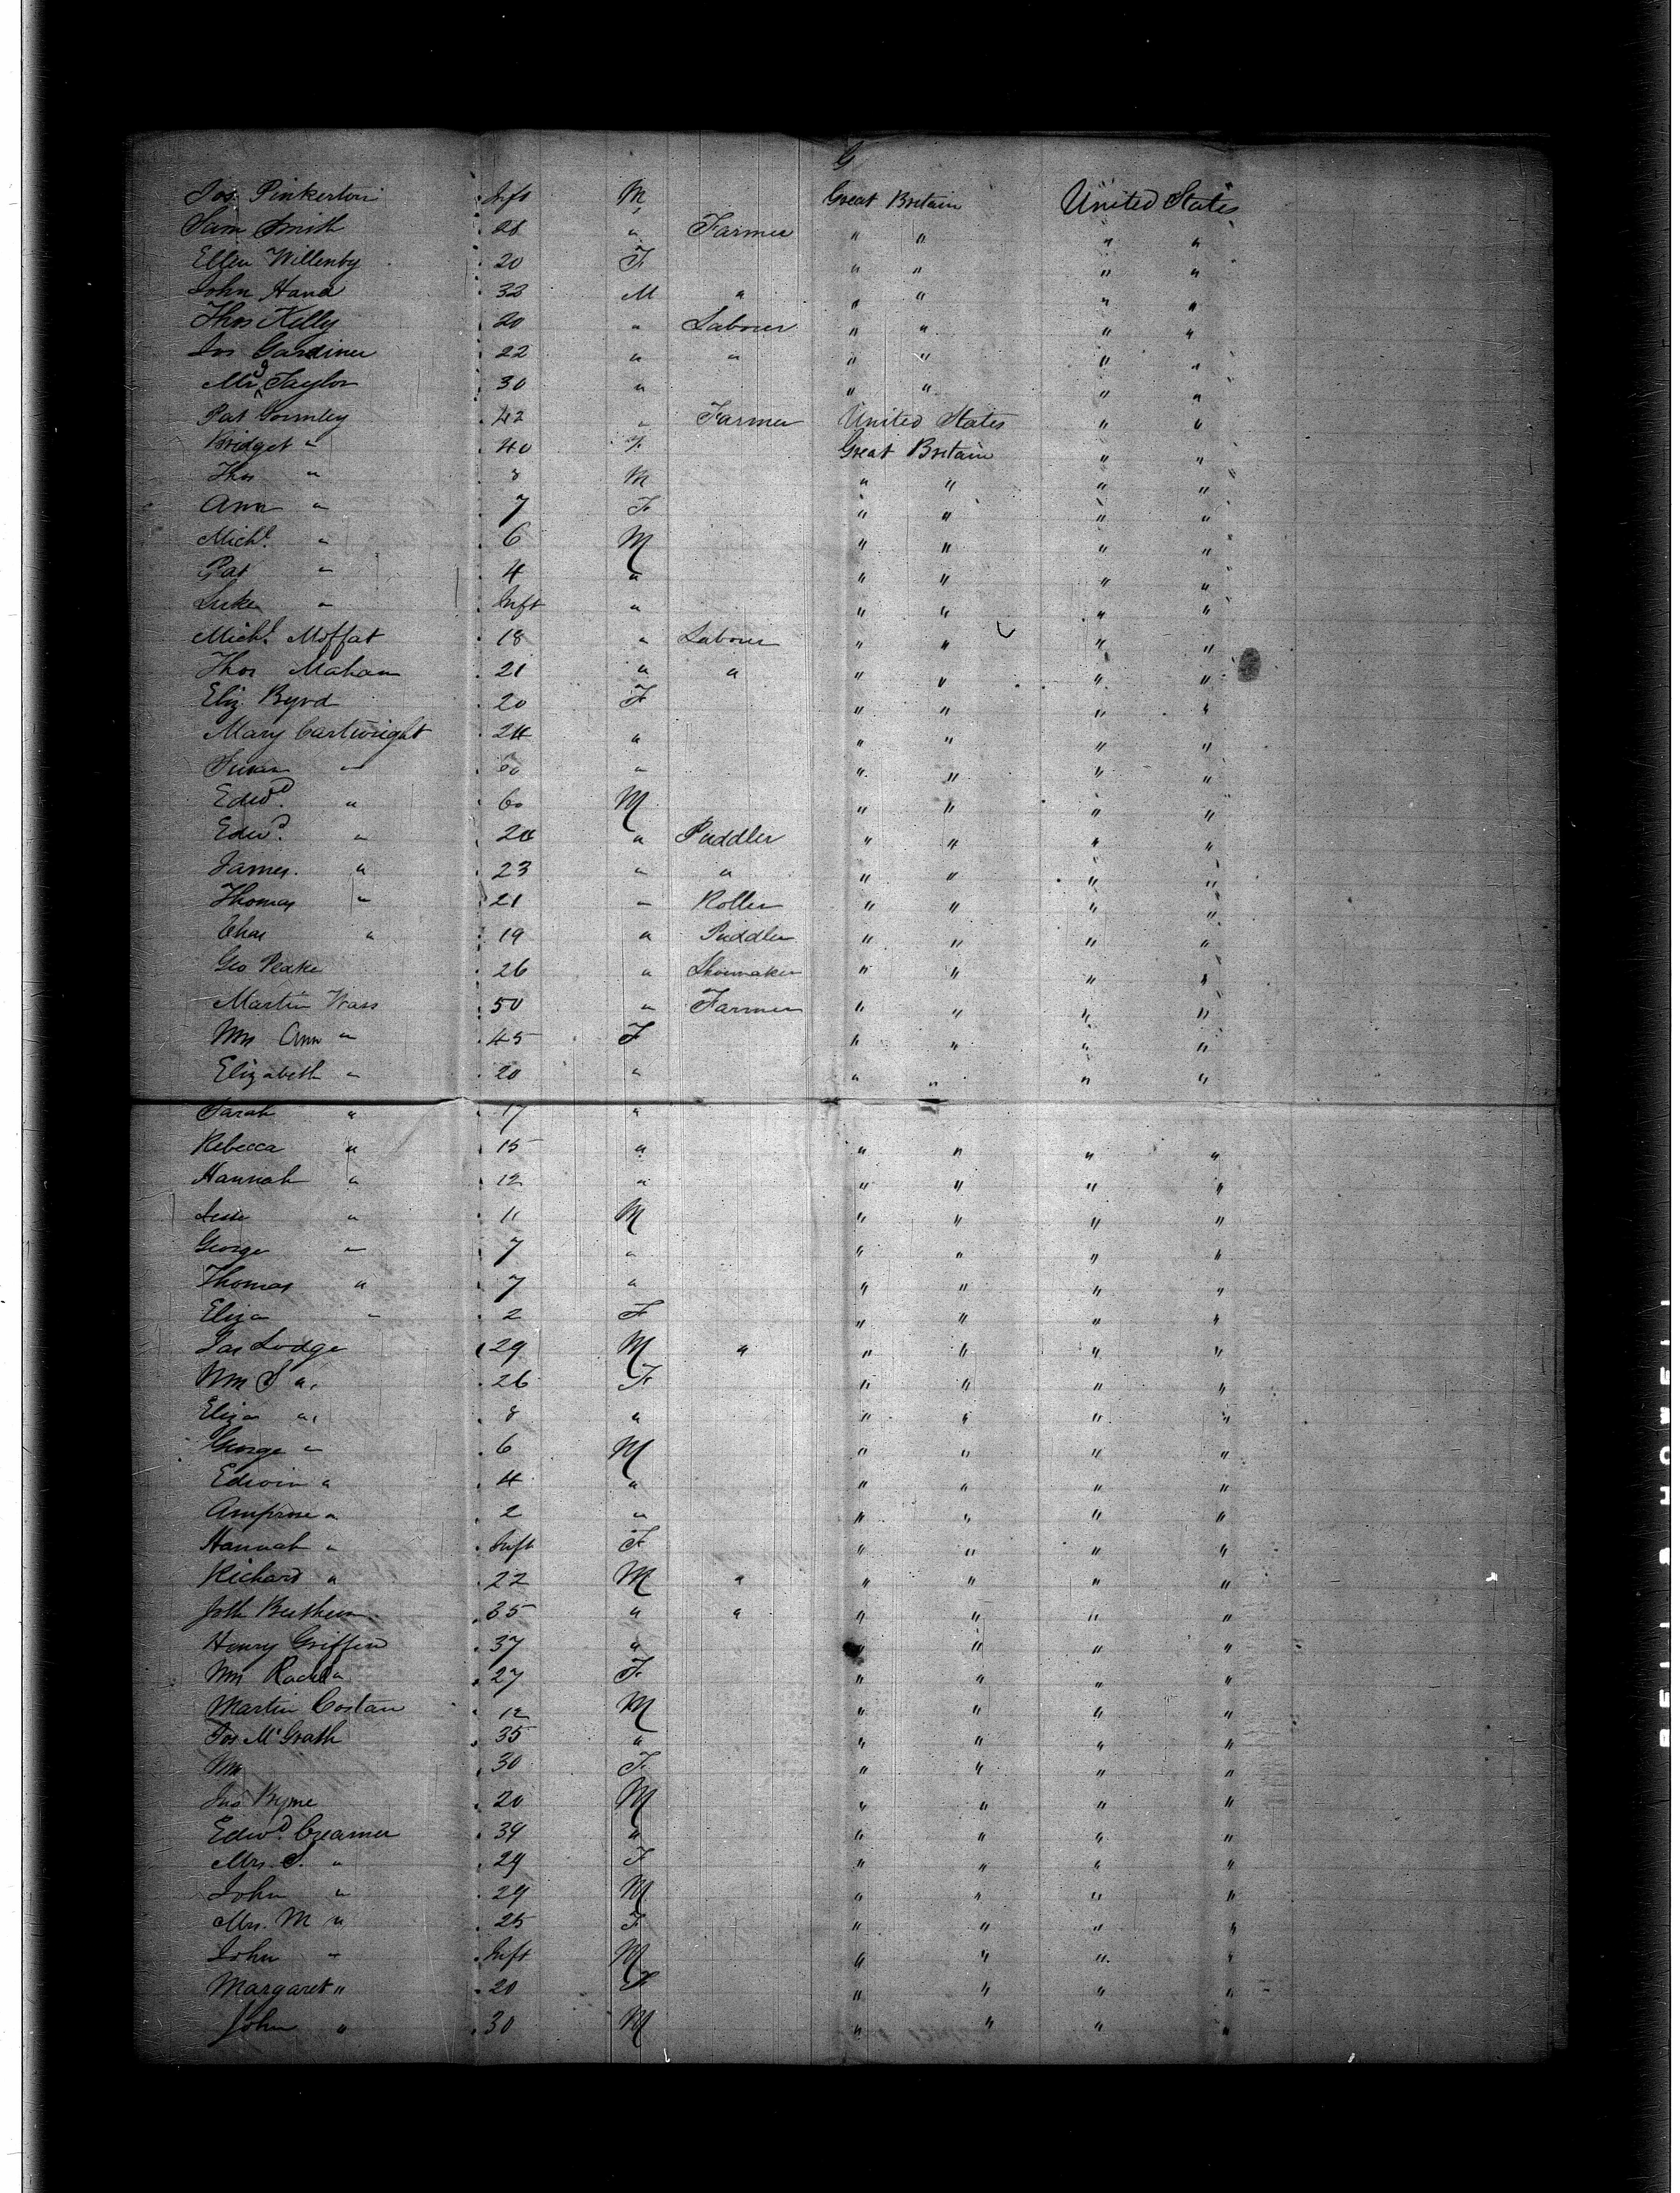 G
Jos Pinkerton Inft M Great Britain United States
Sam Smith 28 " Farmer " " " "
Ellen Willenby 20 F " " " "
John Hand 32 M " " " " "
Thos Kelly 20 " Labourer " " " "
Jos Gardiner 22 " " " " " "
Taylor 30 " " " " "
Pat Gormley 42 " Farmer United States " "
Bridget " 40 F Great Britain " "
Thos " 8 M " " " "
Ann " 7 F " " " "
Michl " 6 M " " " "
Pat " 4 " " " " "
Luke " Inft " " " " "
Michl Moffat 18 " Labourer " " " "
Thos Mahan 21 " " " " " "
Eliz Byrd 20 F " " " "
Mary Cartwright 24 " " " " "
Susan " 60 " " " " "
Edwd " 60 M " " " "
Edwd " " Puddler " " " "
James " 23 " " " " " "
Thomas " 21 " Roller " " " "
Chas " 19 " Puddler " " " "
Geo Peake 26 " Shoemaker " " " "
Martin Wass 50 " Farmer " " " "
Mrs Ann " 45 F " " " "
Elizabeth " 20 " " " " "
Sarah " 17 "
Rebecca " 15 " " " " "
Hannah " 12 " " " " "
Jesse " 11 M " " " "
George " 7 " " " " "
Thomas " 7 " " " " "
Eliza " 2 F " " " "
Jas Lodge 29 M " " " " "
Mrs S " 26 F " " " "
Eliza " 8 " " " " "
George " 6 M " " " "
Edwin " 4 " " " " "
Amprose " 2 " " " " "
Hannah " Inft F " " " "
Richard " 22 M " " " " "
35 " " " " " "
Henry Griffin 37 " " " " "
Mrs Rachl " 27 F " " " "
Martin Costan 12 M " " " "
Jos McGrath 35 " " " " "
Mrs 30 F " " " "
Jno Byrne 20 M " " " "
Edwd Creamer 39 " " " " "
Mrs. S. " 29 F " " " "
John " 29 M " " " "
Mrs. M " 25 F " " " "
John " Inft M " " " "
Margaret " 20 F " " " "
John " 30 M " " " "
BELL & HOWELL